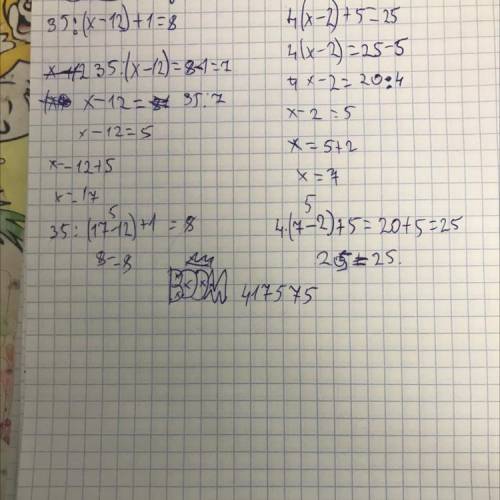 35:(x-12)+1=8
35:(x-12)=8-1=7
x-12= 35:7
x-12=5
x=12+5
x=17
5
35:(17-12)+1=8
8=8
4(x-2)+5=25
4(x-2)=25-5
x-2=20:4
x-2=5
x=5+2
x=7
5
4.(7-2)+5=20+5=25
25=25.
417575